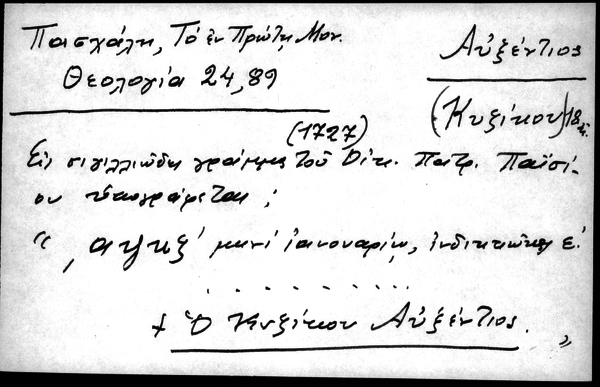 Πασχάλη, Τό ἐν Πρώτῃ Μον.
Θεολογία 24, 89
Αὐξέντιος
(Κυζίκου) 18
(1727)
Εἰς σιγιλλιῶδες γράμμα τοῦ Οἰκ. Πατρ. Παϊσί-
ου ὑπογράφεται;
“, αψκζ' μηνί ἰανουαρίῳ, ἰνδικτιῶνος ε'.
. . . . . . . . . .
+ Ὁ Κυζίκου Αὐξέντιος. „